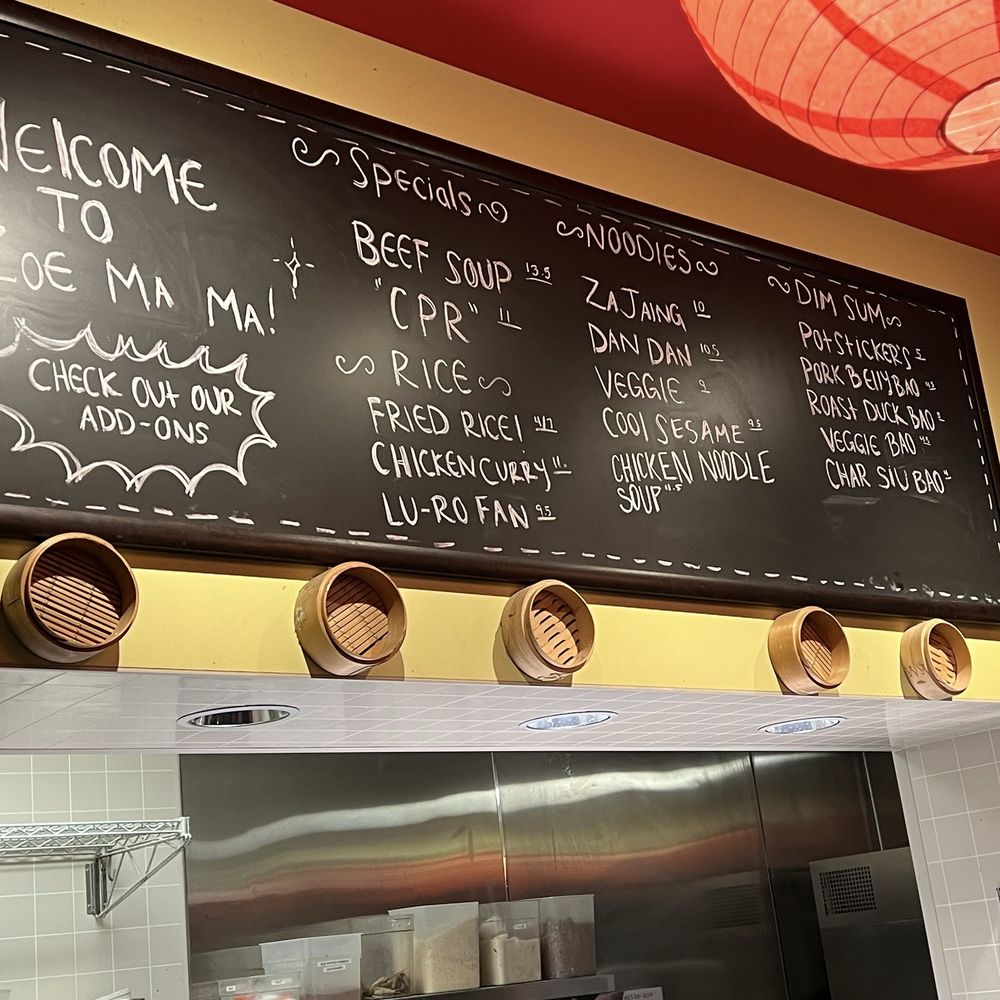 WELCOME
TO
ZOE MA MA!
CHECK OUT OUR
ADD-ONS
Specials
BEEF SOUP 13.5
"CPR" 11
RICE
FRIED RICE!
CHICKEN CURRY 11
LU-RO FAN 9.5
NOODLES
ZAJAING 10
DAN DAN 10.5
VEGGIE 9
COOL SESAME 9.5
CHICKEN NOODLE
SOUP
DIM SUM
POTSTICKER'S 5
PORK BELLY BAO
ROAST DUCK BAO
VEGGIE BAO
CHAR SIU BAO